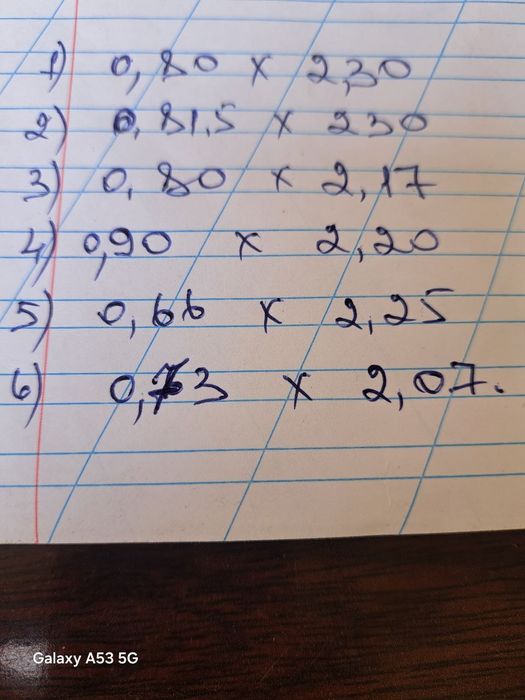 1) 0,80 x 2,30
2) 0,81,5 x 230
3) 0,80 x 2,17
4) 0,90 x 2,20
5) 0,66 x 2,25
6) 0,73 x 2,07.
Galaxy A53 5G